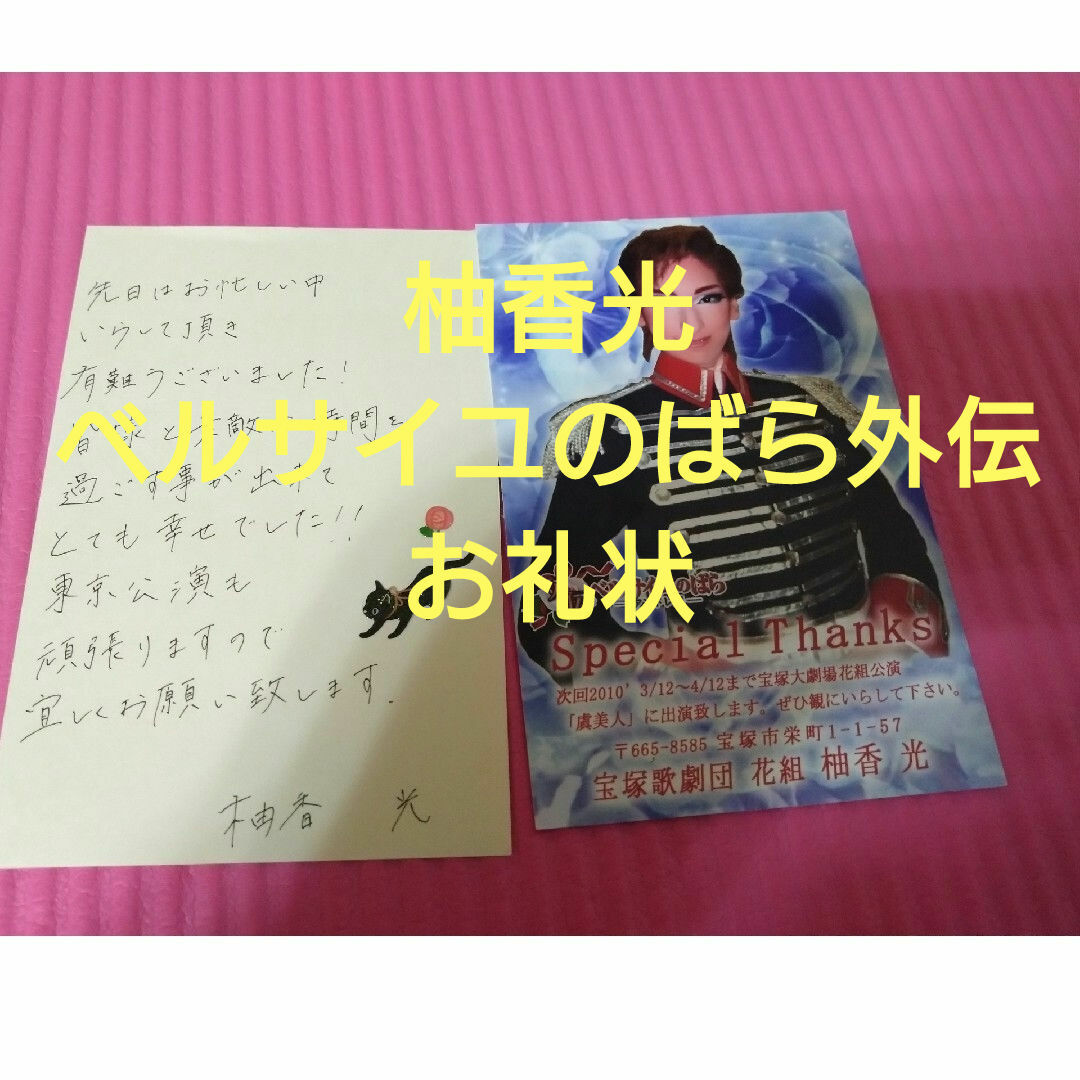 柚香光
ベルサイユのばら外伝
お礼状
先日はお忙しい中
いらして頂き
有難うございました!
と 敵 時間を
過ごす事が出来て
とても幸せでした!!
東京公演も
頑張りますので
宜しくお願い致します.
柚香 光
のばら
Special Thanks
次回2010' 3/12～4/12まで宝塚大劇場花組公演
「虞美人」に出演致します。ぜひ観にいらして下さい。
〒665-8585 宝塚市栄町1-1-57
宝塚歌劇団 花組 柚香 光